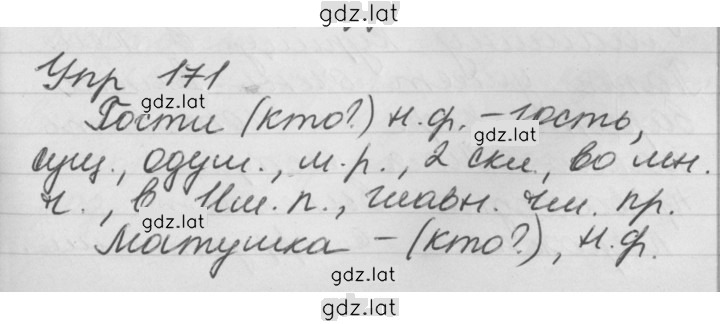 gdz.lat
Упр 171
gdz.lat
Гости (кто?) н.ф. - гость,
gdz.lat
сущ., одуш., м.р., 2 скл., во мн.
ч., в Им.п., главн. чл. пр.
gdz.lat
Матушка - (кто?), н.ф.
gdz.lat
gdz.lat